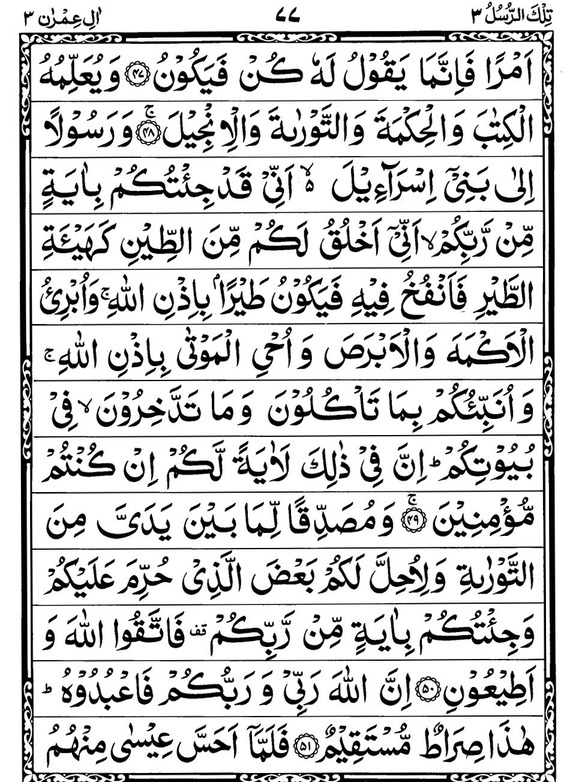 تِلْكَ الرُّسُلُ ٣ ٧٧ اٰلِ عِمْرٰن ٣
اَمْرًا فَاِنَّمَا يَقُوْلُ لَهٗ كُنْ فَيَكُوْنُ ﴿۴۷﴾ وَ يُعَلِّمُهُ
الْكِتٰبَ وَالْحِكْمَةَ وَالتَّوْرٰىةَ وَالْاِنْجِيْلَ ﴿۴۸﴾ۚ وَ رَسُوْلًا
اِلٰى بَنِيْۤ اِسْرَآءِيْلَ ۙ۬ اَنِّيْ قَدْ جِئْتُكُمْ بِاٰيَةٍ
مِّنْ رَّبِّكُمْ ۙ اَنِّيْۤ اَخْلُقُ لَكُمْ مِّنَ الطِّيْنِ كَهَيْـَٔةِ
الطَّيْرِ فَاَنْفُخُ فِيْهِ فَيَكُوْنُ طَيْرًۢا بِاِذْنِ اللّٰهِ ۚ وَاُبْرِئُ
الْاَكْمَهَ وَالْاَبْرَصَ وَ اُحْيِ الْمَوْتٰى بِاِذْنِ اللّٰهِ ۚ
وَ اُنَبِّئُكُمْ بِمَا تَاْكُلُوْنَ وَ مَا تَدَّخِرُوْنَ ۙ فِيْ
بُيُوْتِكُمْ ؕ اِنَّ فِيْ ذٰلِكَ لَاٰيَةً لَّكُمْ اِنْ كُنْتُمْ
مُّؤْمِنِيْنَ ﴿۴۹﴾ۚ وَ مُصَدِّقًا لِّمَا بَيْنَ يَدَيَّ مِنَ
التَّوْرٰىةِ وَ لِاُحِلَّ لَكُمْ بَعْضَ الَّذِيْ حُرِّمَ عَلَيْكُمْ
وَ جِئْتُكُمْ بِاٰيَةٍ مِّنْ رَّبِّكُمْ قف فَاتَّقُوا اللّٰهَ وَ
اَطِيْعُوْنِ ﴿۵۰﴾ اِنَّ اللّٰهَ رَبِّيْ وَ رَبُّكُمْ فَاعْبُدُوْهُ ؕ
هٰذَا صِرَاطٌ مُّسْتَقِيْمٌ ﴿۵۱﴾ فَلَمَّاۤ اَحَسَّ عِيْسٰى مِنْهُمُ